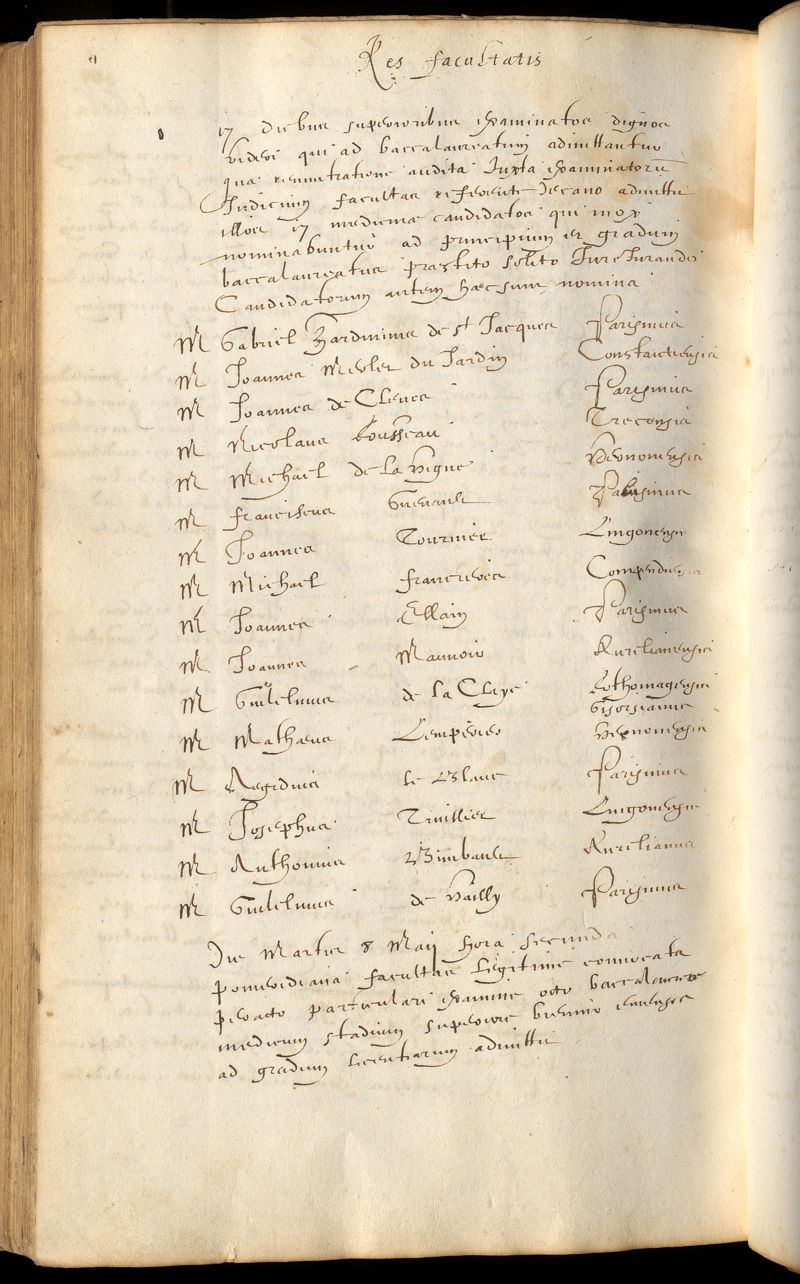 Res facultatis
17 diebus superioribus examinatos dignos
videri qui ad baccalaureatum admittantur
qua renuntiatione audita Juxta examinatorū
Judicium facultas referente Decano admittit
illos 17 medicinæ candidatos qui mox
nominabuntur ad principium et gradum
baccalaureatus præstito solito Jurejurando
Candidatorum autem hæc sunt nomina
M Gabriel Hardouinus de st Jacques Parisinus
M Joannes Merlet du Jardin Constantiensis
M Joannes de Cleves Parisinus
M Nicolaus Rousseau Trecensis
M Michael de la Vigne Vernonensis
M Franciscus Guenault Parisinus
M Joannes Tournier Lingonensis
M Michael Francieres Compendiensis
M Joannes Ellain Parisinus
M Joannes Mannoir Aurelianensis
M Guilelmus de la Claye Rothomagensis
M Mathæus Lemperier Gisorsianus
Vernonensis
M Aegidius le Blanc Parisinus
M Josephus Truillier Lingonensis
M Anthonius Bimbault Aurelianus
M Guilelmus de Vailly Parisinus
Die Martis 8 Maij hora secunda
pomeridiana facultas legitime convocata
peracto particulari examine octo baccalaureos
medicum stadium superiore biennio emensos
ad gradum licentiarum admittit